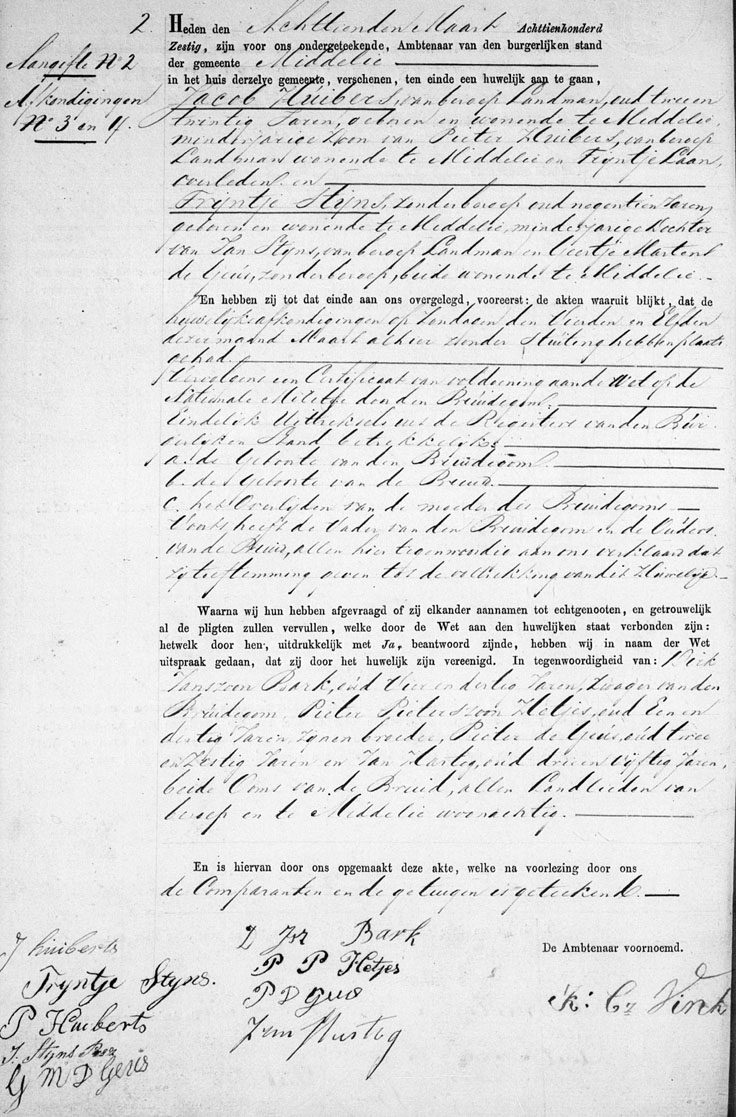 2.
Aangifte No 2
Afkondigingen
No 3 en 4.
Heden den Achttienden Maart Achttienhonderd
Zestig, zijn voor ons ondergeteekende, Ambtenaar van den burgerlijken stand
der gemeente Middelie
in het huis derzelve gemeente, verschenen, ten einde een huwelijk aan te gaan,
Jacob Huibers, van beroep Landman, oud twee en
twintig Jaren, geboren en wonende te Middelie,
minderjarige Zoon van Pieter Huibers, van beroep
Landman wonende te Middelie en Tryntje Laan,
overleden en
Tryntje Styns, zonder beroep oud negentien Jaren,
geboren en wonende te Middelie, minderjarige Dochter
van Jan Styns, van beroep Landman en Geertje Martens
de Geus, zonder beroep, beide wonende te Middelie.
En hebben zij tot dat einde aan ons overgelegd, vooreerst: de akten waaruit blijkt, dat de
huwelijks afkondigingen op Zondagen den Vierden en Elfden
dezer maand Maart alhier zonder Stuiting hebben plaats
gehad.
Vervolgens een Certificaat van voldoening aan de Wet op de
Nationale Militie door den Bruidegom.
Eindelijk Uittreksels uit de Registers van den Bur-
gerlijken Stand betrekkelijk:
a. de Geboorte van den Bruidegom.
b. de Geboorte van de Bruid.
c. het Overlijden van de moeder des Bruidegoms
Voorts heeft de Vader van den Bruidegom en de Ouders
van de Bruid, allen hier tegenwoordig aan ons verklaard dat
zy toestemming geven tot de voltrekking van dit Huwelyk.
Waarna wij hun hebben afgevraagd of zij elkander aannamen tot echtgenooten, en getrouwelijk
al de pligten zullen vervullen, welke door de Wet aan den huwelijken staat verbonden zijn:
hetwelk door hen, uitdrukkelijk met Ja, beantwoord zijnde, hebben wij in naam der Wet
uitspraak gedaan, dat zij door het huwelijk zijn vereenigd. In tegenwoordigheid van: Dirk
Janszoon Bark, oud Vier en dertig Jaren, Zwager van den
Bruidegom, Pieter Pieterszoon Hetjes, oud Een en
dertig Jaren, zynen broeder, Pieter de Geus, oud twee
en Zestig Jaren en Jan Hartog, oud drie en vyftig Jaren,
beide Ooms van de Bruid, allen Landlieden van
beroep en te Middelie woonachtig.
En is hiervan door ons opgemaakt deze akte, welke na voorlezing door ons
de Comparanten en de getuigen is geteekend.
J Huiberts
Tryntje Styns.
P Huiberts
J. Styns
G M D Geus
D Jsz Bark
P P Hetjes
P D Geus
Jan Hartog
De Ambtenaar voornoemd.
K: Cz Vink